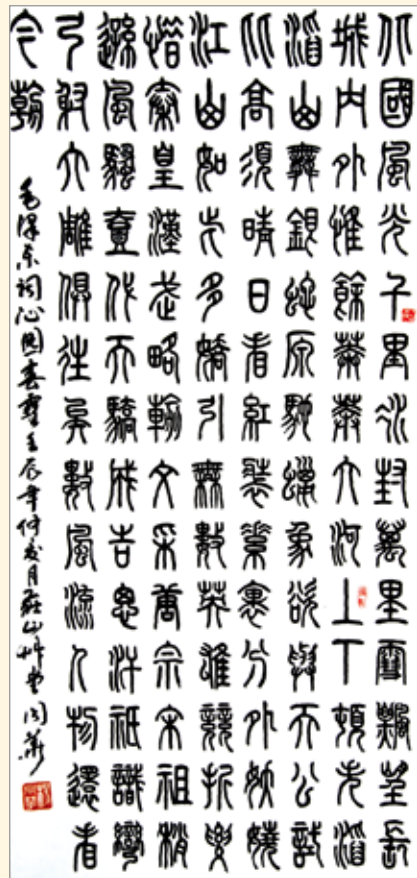 北國風光千里冰封萬里雪飄望長
城內外惟餘莽莽大河上下頓失滔
滔山舞銀蛇原馳蠟象欲與天公試
比高須晴日看紅裝素裹分外妖嬈
江山如此多嬌引無數英雄競折腰
惜秦皇漢武略輸文采唐宗宋祖稍
遜風騷壹代天驕成吉思汗祇識彎
弓射大雕俱往矣數風流人物還看
今朝
毛澤东詞沁園春雪壬辰年仲月山艸堂